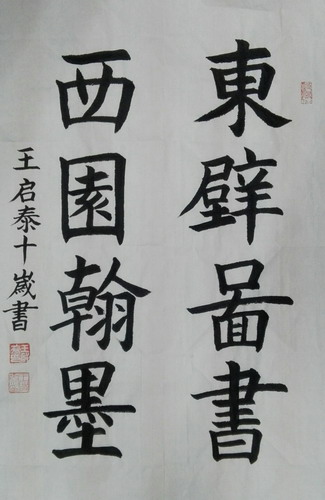 東壁啚書
西園翰墨
王启泰十歲書